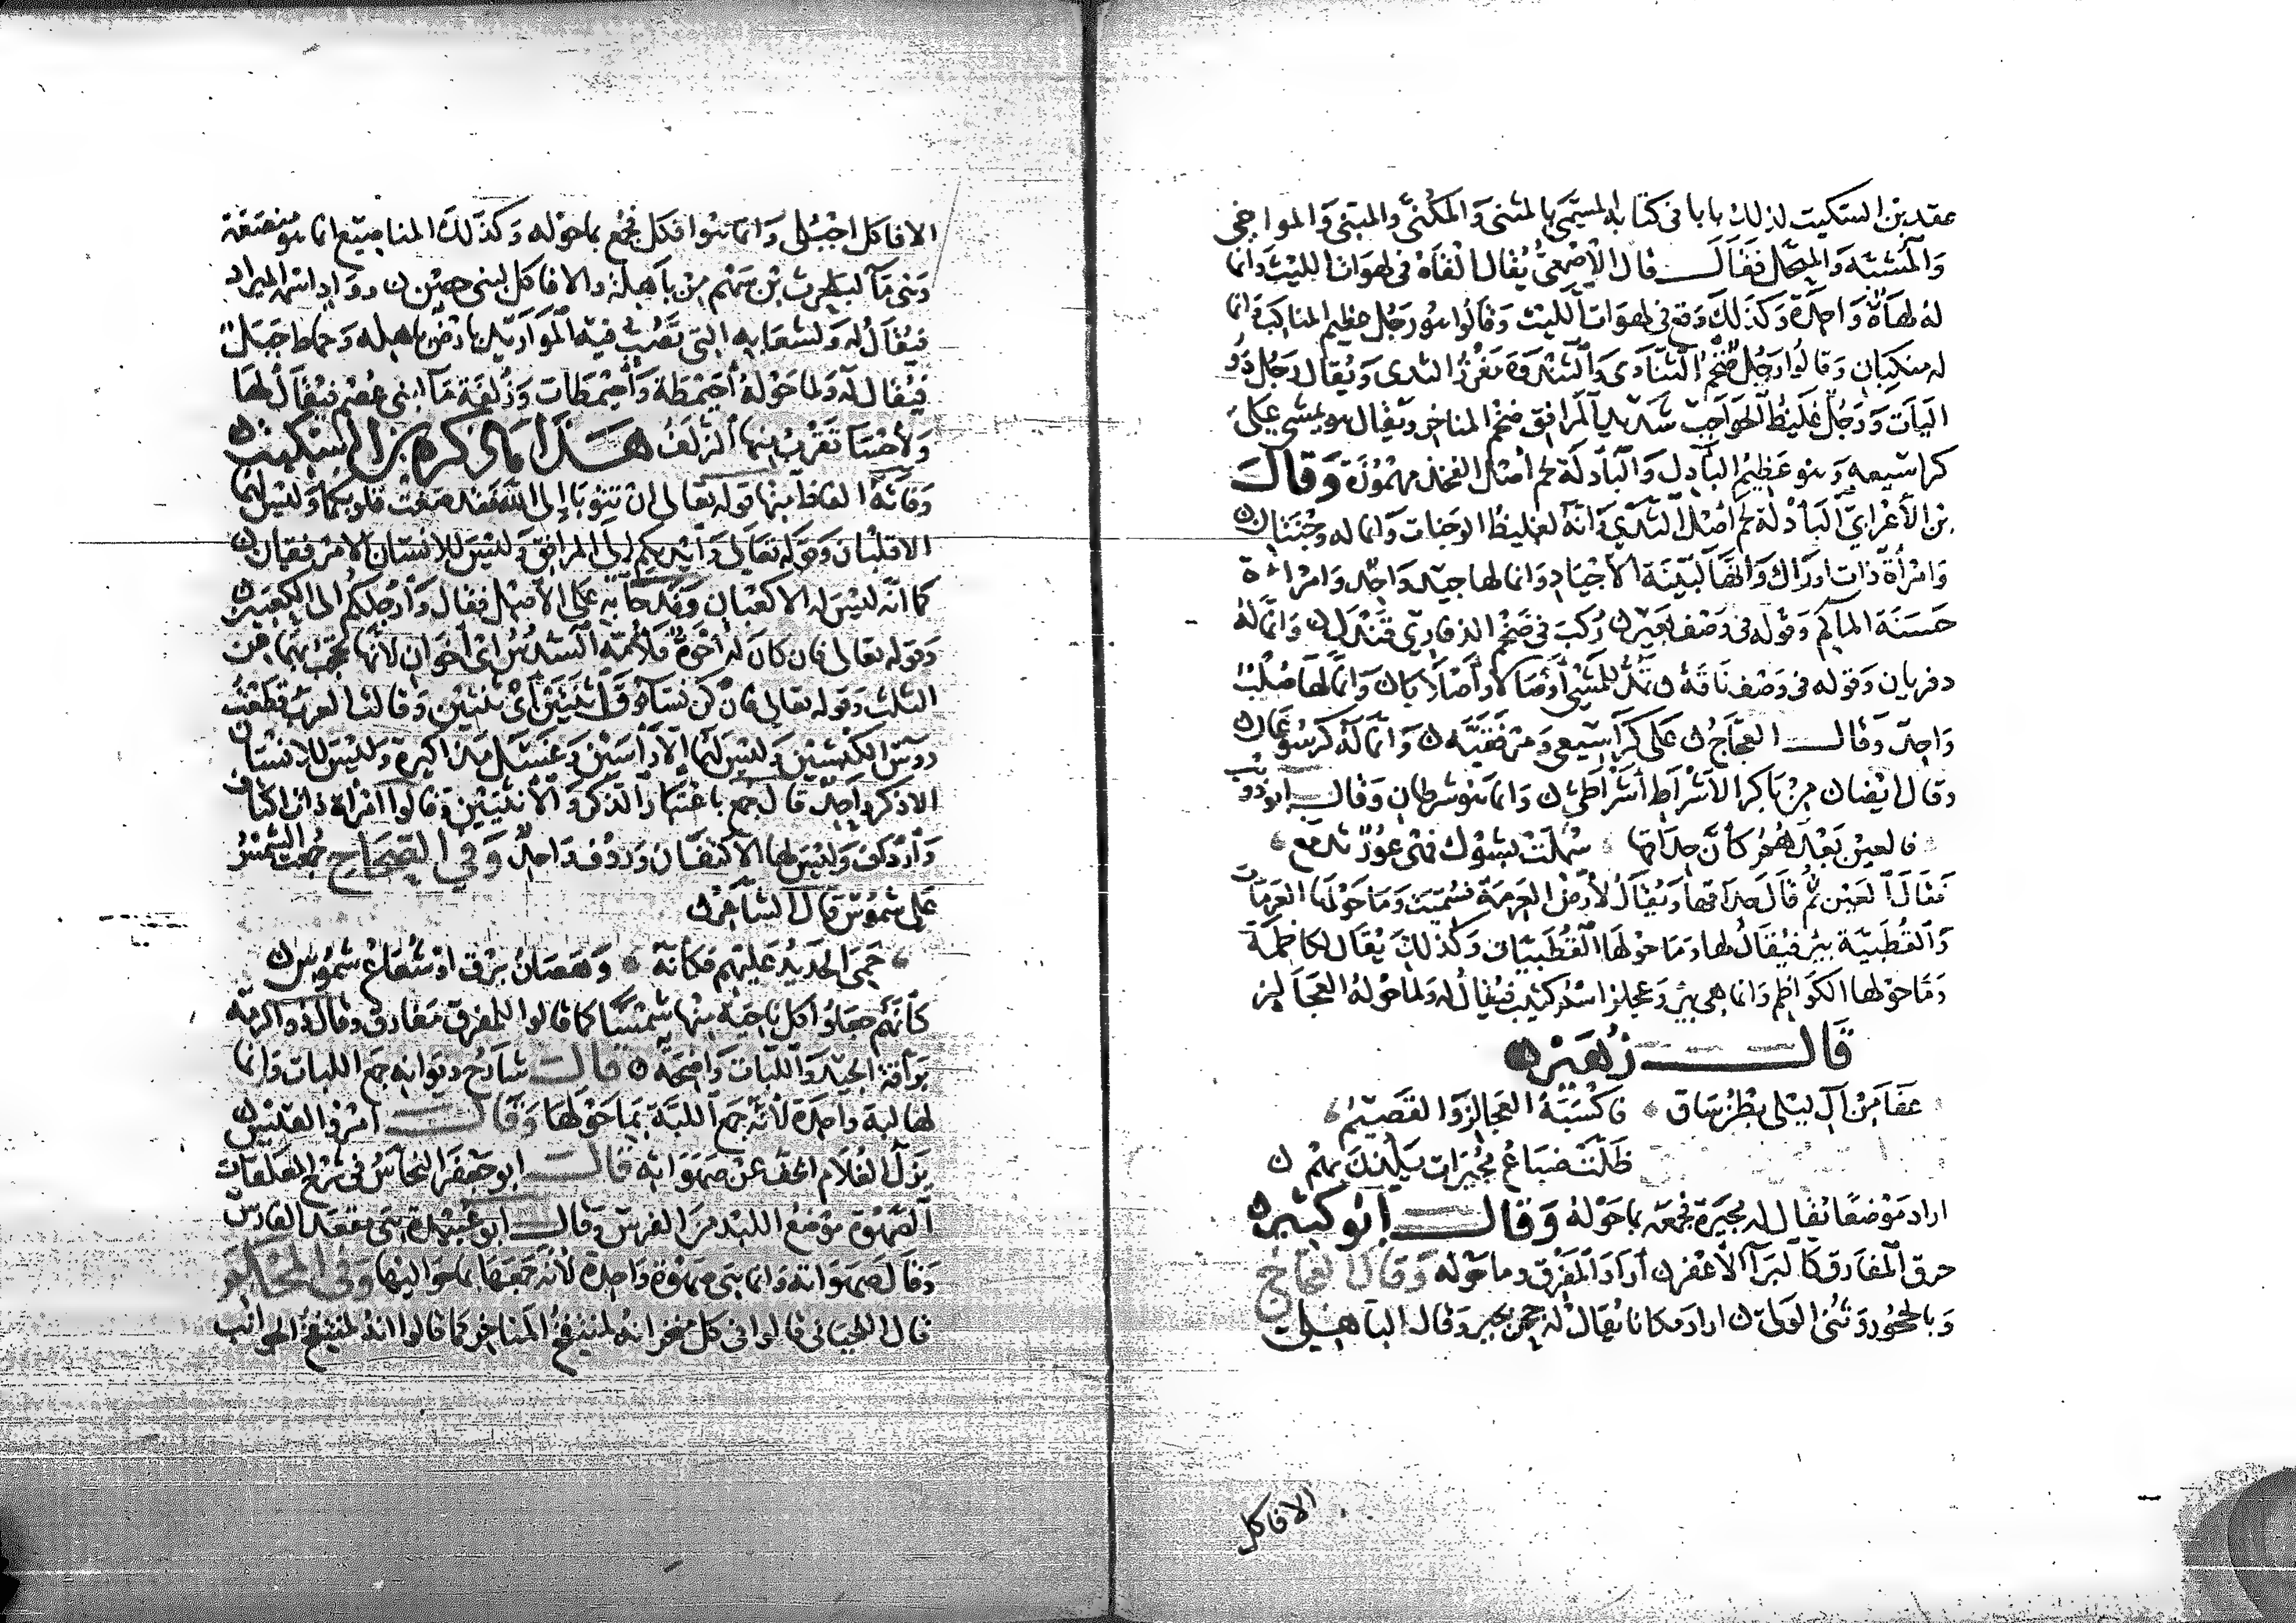 عقد بن السكيت لذلك بابا في كتابه المسمى بالمثنى والمكنى والمبنى والمواخي
والمشبه والمنحل فقال قال الأصمعي يقال ألقاه في لهوات الليث وانما
له لهاة واحدة وكذلك وقع في لهوات الليث وقالوا هو رجل عظيم المناكب وانما
له منكبان وقالوا رجل ضخم الثنادي والثندوة مغرز الثدى ويقال رجل ذو
اليات ورجل غليظ الحواجب شديد المرافق ضخم المناخر ويقال هو يمشى على
كراسيعه وهو عظيم البآدل والبأدلة لحم أصل الفخذ مهموزة وقال
بن الأعرابي البأدلة لحم أصل الثدي وانه لغليظ الوجنات وانما له وجنتان
وامرأة ذات اوراك وانها لبينة الأجياد وانما لها جيد واحد وامرأة
حسنة المآكم وقوله في وصف بعير ركب في ضخم الذفاري قندل وانما له
ذفريان وقوله في وصف ناقة تمد للمشي أوصالا وأصلابا وانما لها صلب
واحد وقال العجاج على كراسيعي ومرفقيه وانما له كرسوعان
وقال ايضا من باكر الأشراط أشراطي وانما هو شرطان وقال ابو ذويب
فالعين بعدهم كأن حداقها سملت بشوك فهي عور تدمع
فقال العين ثم قال حداقها ويقال لأرض العرمة فسميت وما حولها العرمات
والقطبية بير فيقال لها وما حولها القطبيات وكذلك يقال لكاظمة
وما حولها الكواظم وانما هي بير وعجلز اسم كثيب فيقال له ولما حوله العجالز
قال زهير
عفا من آل ليلى بطن ساق فأكثبة العجالز والقصيم
ظلت ضباع مجيرات يلذن بهم
اراد موضعا يقال له مجيرة فجمعه بما حوله وقال ابو كبير
حرق المفارق كالبراء الأعفر أراد المفرق وما حوله وقال العجاج
وبالحجور وثنى الولى اراد مكانا يقال له حجر بجير وقال الباهلي
الافاكل
الافاكل اجبل وانما هو افكل فجمع بما حوله وكذلك المناصيع انما هو منصعة
وهي ماء لبلحرث بن سهم من باهلة والافاكل لبنى حصن وواد اسمه الميراد
فيقال له ولشعابه التى تصب فيه المواريد بارض باهله وحماط جبل
فيقال له ولما حوله أحيمطة وأحيمطات وزلفة ماء لبني عصر فيقال لها
ولأحساء تقرب منها الزلف هذا ما ذكره بن السكيت
وفاته الفاظ منها قوله تعالى ان تتوبا إلى الله فقد صغت قلوبكما وليس لهما
الا قلبان وقوله تعالى وأيديكم إلى المرافق وليس للانسان الا مرفقان
كما انه ليس له الا كعبان وقد جا به على الأصل فقال وأرجلكم الى الكعبين
وقوله تعالى فان كان له أخوة فلأمه السدس اى أخوان لأنها تحجب بهما عن
الثلث وقوله تعالى فان كن نساء فوق اثنتين أى ثنتين وقالت العرب قطعت
روس الكبشين وليس لهما الا رأسين وغسل مذاكيره وليس للانسان
الا ذكر واحد قال جمع باعتبار الذكر والأنثيين وقالوا امرأة ذات اكتاف
وأرداف وليس لها الا كتفان وردف واحد وفي الصحاح جمعت الشمس
على شموس قال الشاعر
حمي الحديد عليهم فكأنه ومضان برق او شعاع شموس
كأنهم جعلوا كل ناحية منها شمسا كما قالوا للمفرق مفارق وقال ذو الرمة
براقة الجيد واللبات واضحة قال شارح ديوانه جمع اللبات وانما
لها لبة واحدة لأنه جمع اللبة بما حولها وقال امرؤ القيس
يزل الغلام الخف عن صهواته قال ابو جعفر النحاس في شرح المعلقات
الصهوة موضع اللبد من الفرس وقال ابو عبيدة هى مقعد الفارس
وقال صهواته وانما هى صهوة واحدة لأنه جمعها بما حواليها وفي المحكم
قال اللحيانى قالوا فى كل منخر انه لمنتفخ المناخر كما قالوا انه لمنتفخ الجوانب